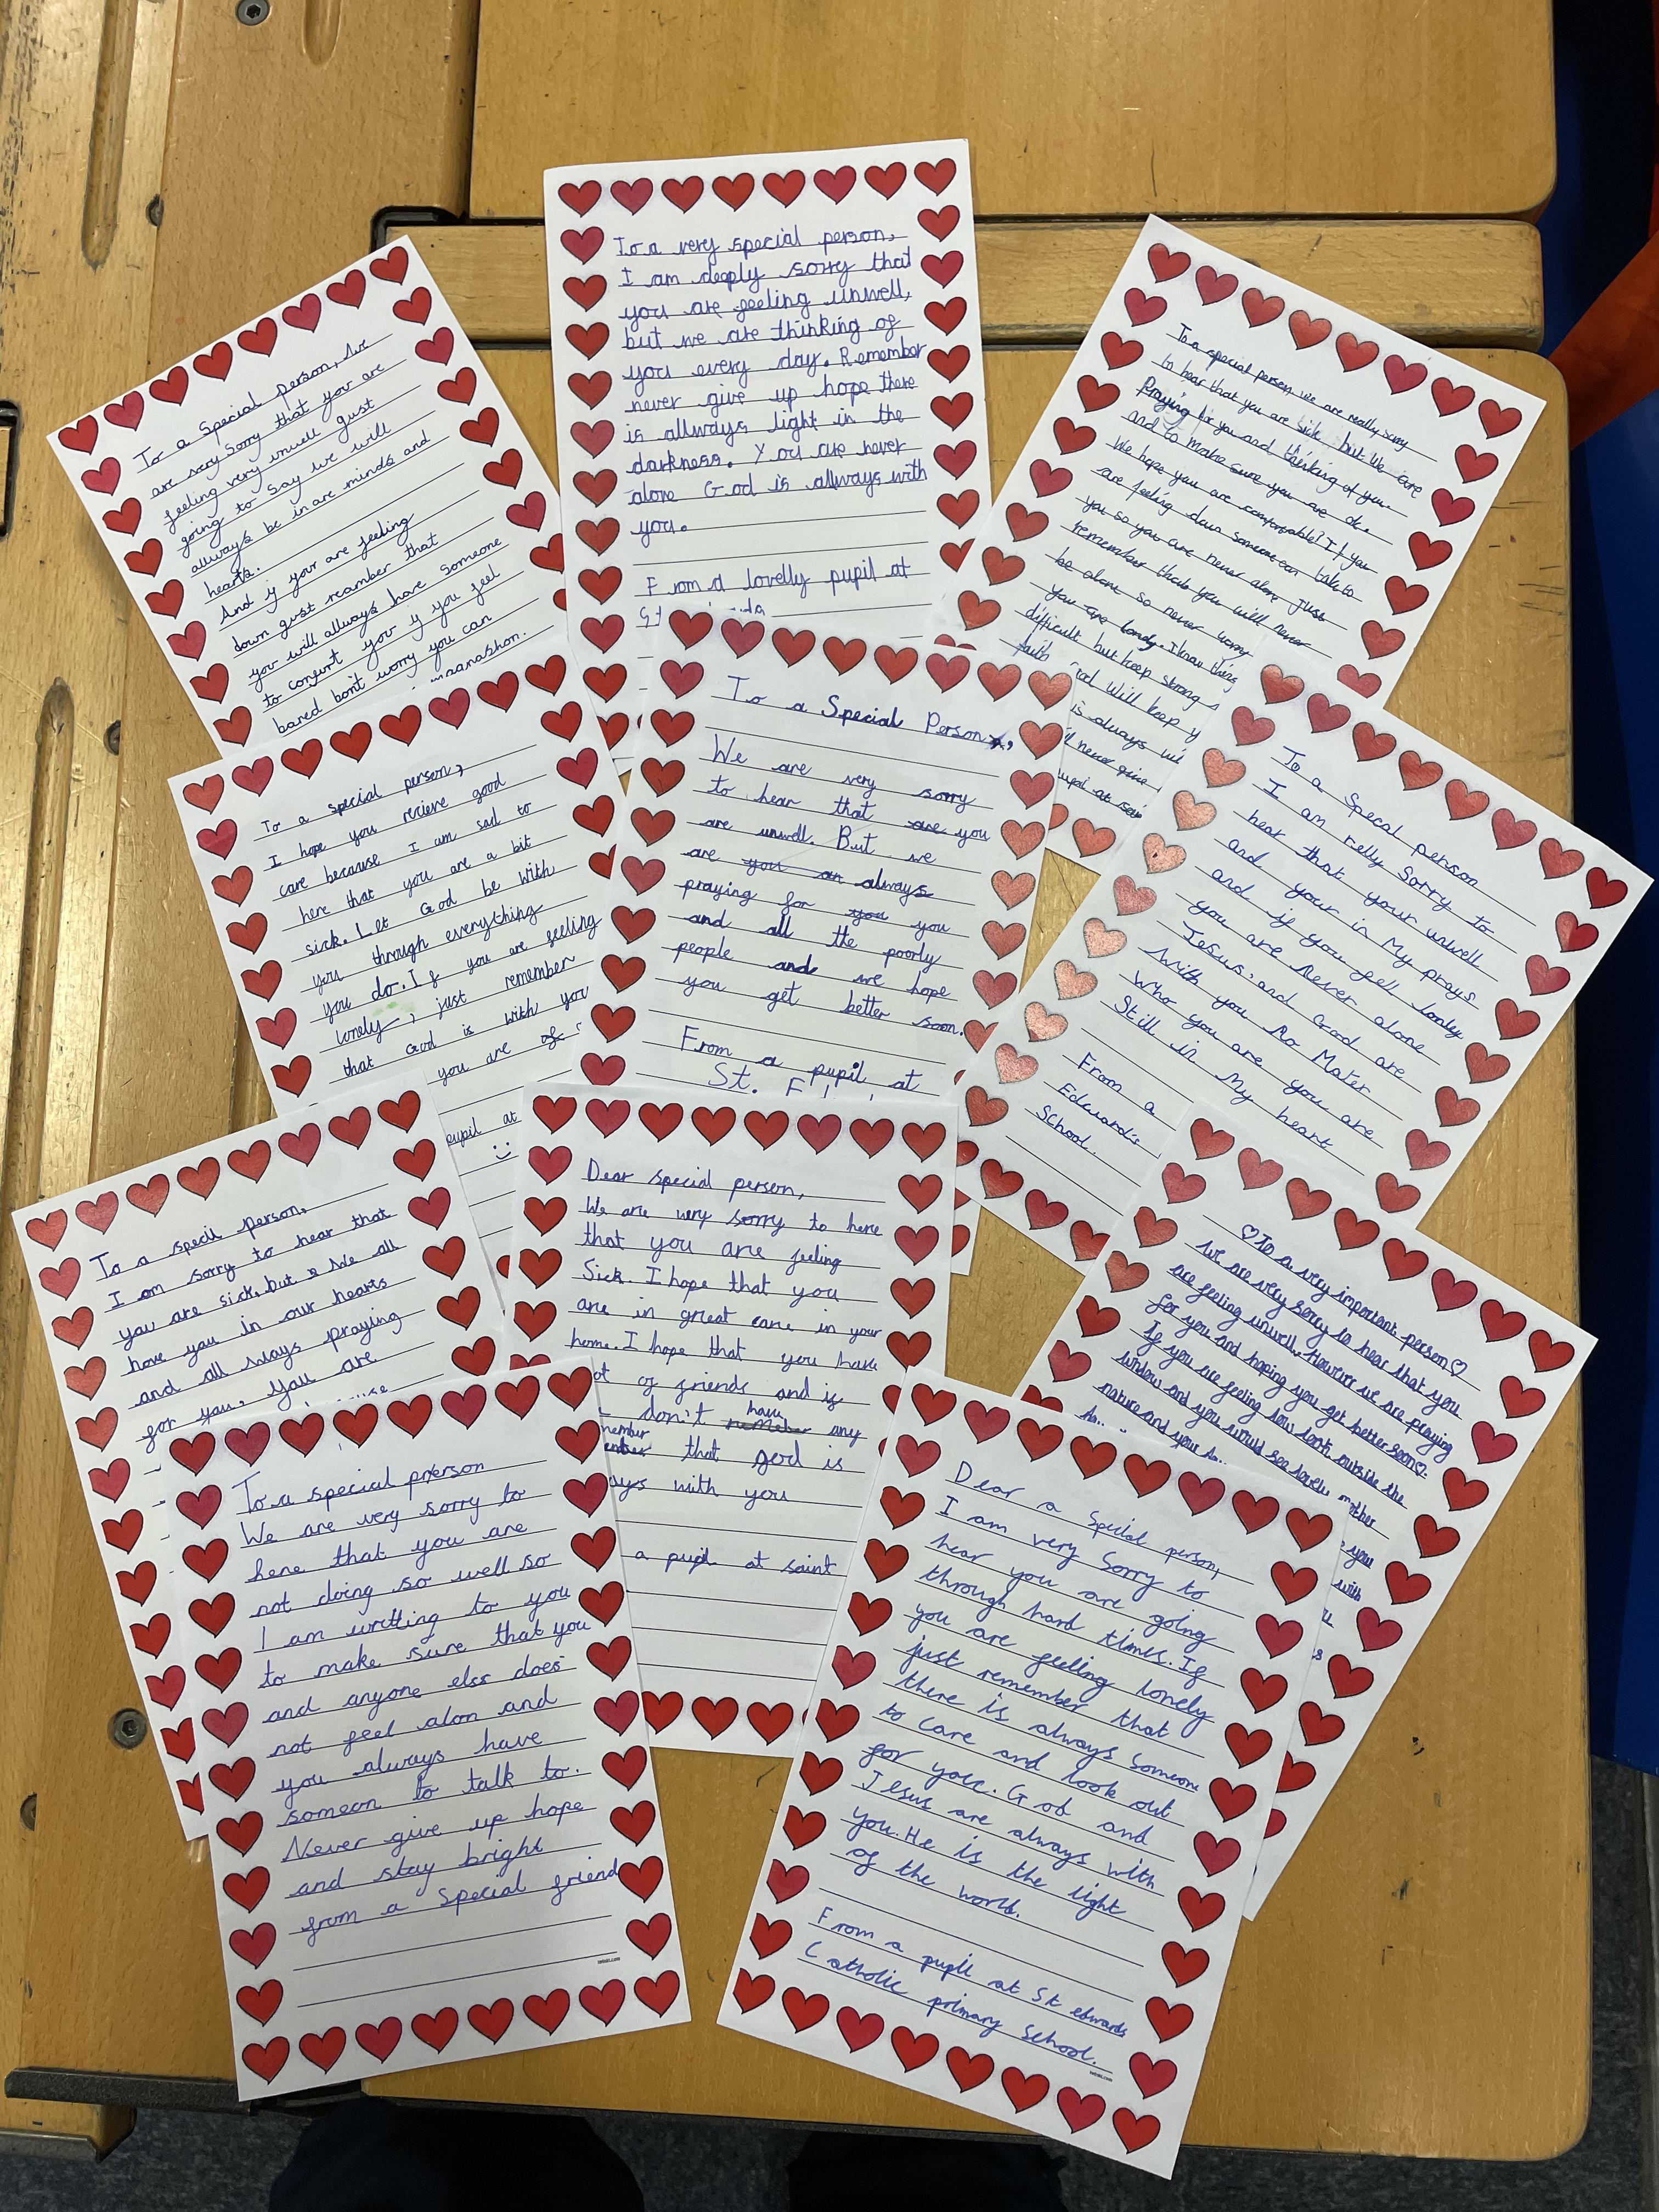 To a Special person, We
are very sorry that you are
feeling very unwell gust
going to say we will
allways be in are minds and
hearts.
And if your are feeling
down gust reamber that
you will allways have someone
to confurt your if you feel
bared don't worry you can
To a very special person,
I am deeply sorry that
you are feeling unwell,
but we are thinking of
you every day. Remember
never give up hope there
is allways light in the
darkness. You are never
alone God is allways with
you.
From a lovelly pupil at
To a special person, we are really sorry
to hear that you are sick but We are
Praying for you and thinking of you.
and to make sure you are ok.
We hope you are comfortable! If you
are feeling down someone can talk to
you so you are never alone Just
remember that you will never
be alone so never worry
you are lonely. I know things
difficult but keep strong
faith God will keep
is always wi
never give
pupil at sain
To a special person,
I hope you recieve good
care because I am sad to
here that you are a bit
sick. Let God be with
you through everything
you do. If you are feeling
lonely, just remember
that God is with you
you are of
pupil at
To a Special Person,
We are very sorry
to hear that are you
are unwell. But we
are you an always
praying for you you
and all the poorly
people and we hope
you get better soon.
From a pupil at
St. E
To a Special person
I am relly Sorry to
hear that your unwell
and your in My prays
and if you fell lonley
you are Never alone
Jesus, and God are
With you No Mater
Who you are you are
Still in My heart
From a
Edward's
School.
To a specil person,
I am sorry to hear that
you are sick, but we all
have you in our hearts
and all ways praying
for you, You are
Dear special person,
We are very sorry to here
that you are feeling
Sick. I hope that you
are in great care in your
home. I hope that you have
ot of friends and if
don't have any
member that god is
ays with you
a pupil at saint
♡To a very important person♡
We are very sorry to hear that you
are feeling unwell. However we are praying
for you and hoping you get better soon♡.
If you are feeling low look outside the
window and you would see lovely
nature and your
you
with
To a special person
We are very sorry to
here that you are
not doing so well so
I am writting to you
to make sure that you
and anyone else does
not feel alon and
you always have
someon to talk to.
Never give up hope
and stay bright
from a special friend
Dear a Special person,
I am very Sorry to
hear you are going
through hard times. If
you are feeling lonely
just remember that
there is always someone
to care and look out
for you. God and
Jesus are always with
you. He is the light
of the world.
From a pupil at St edwards
Catholic primary School.